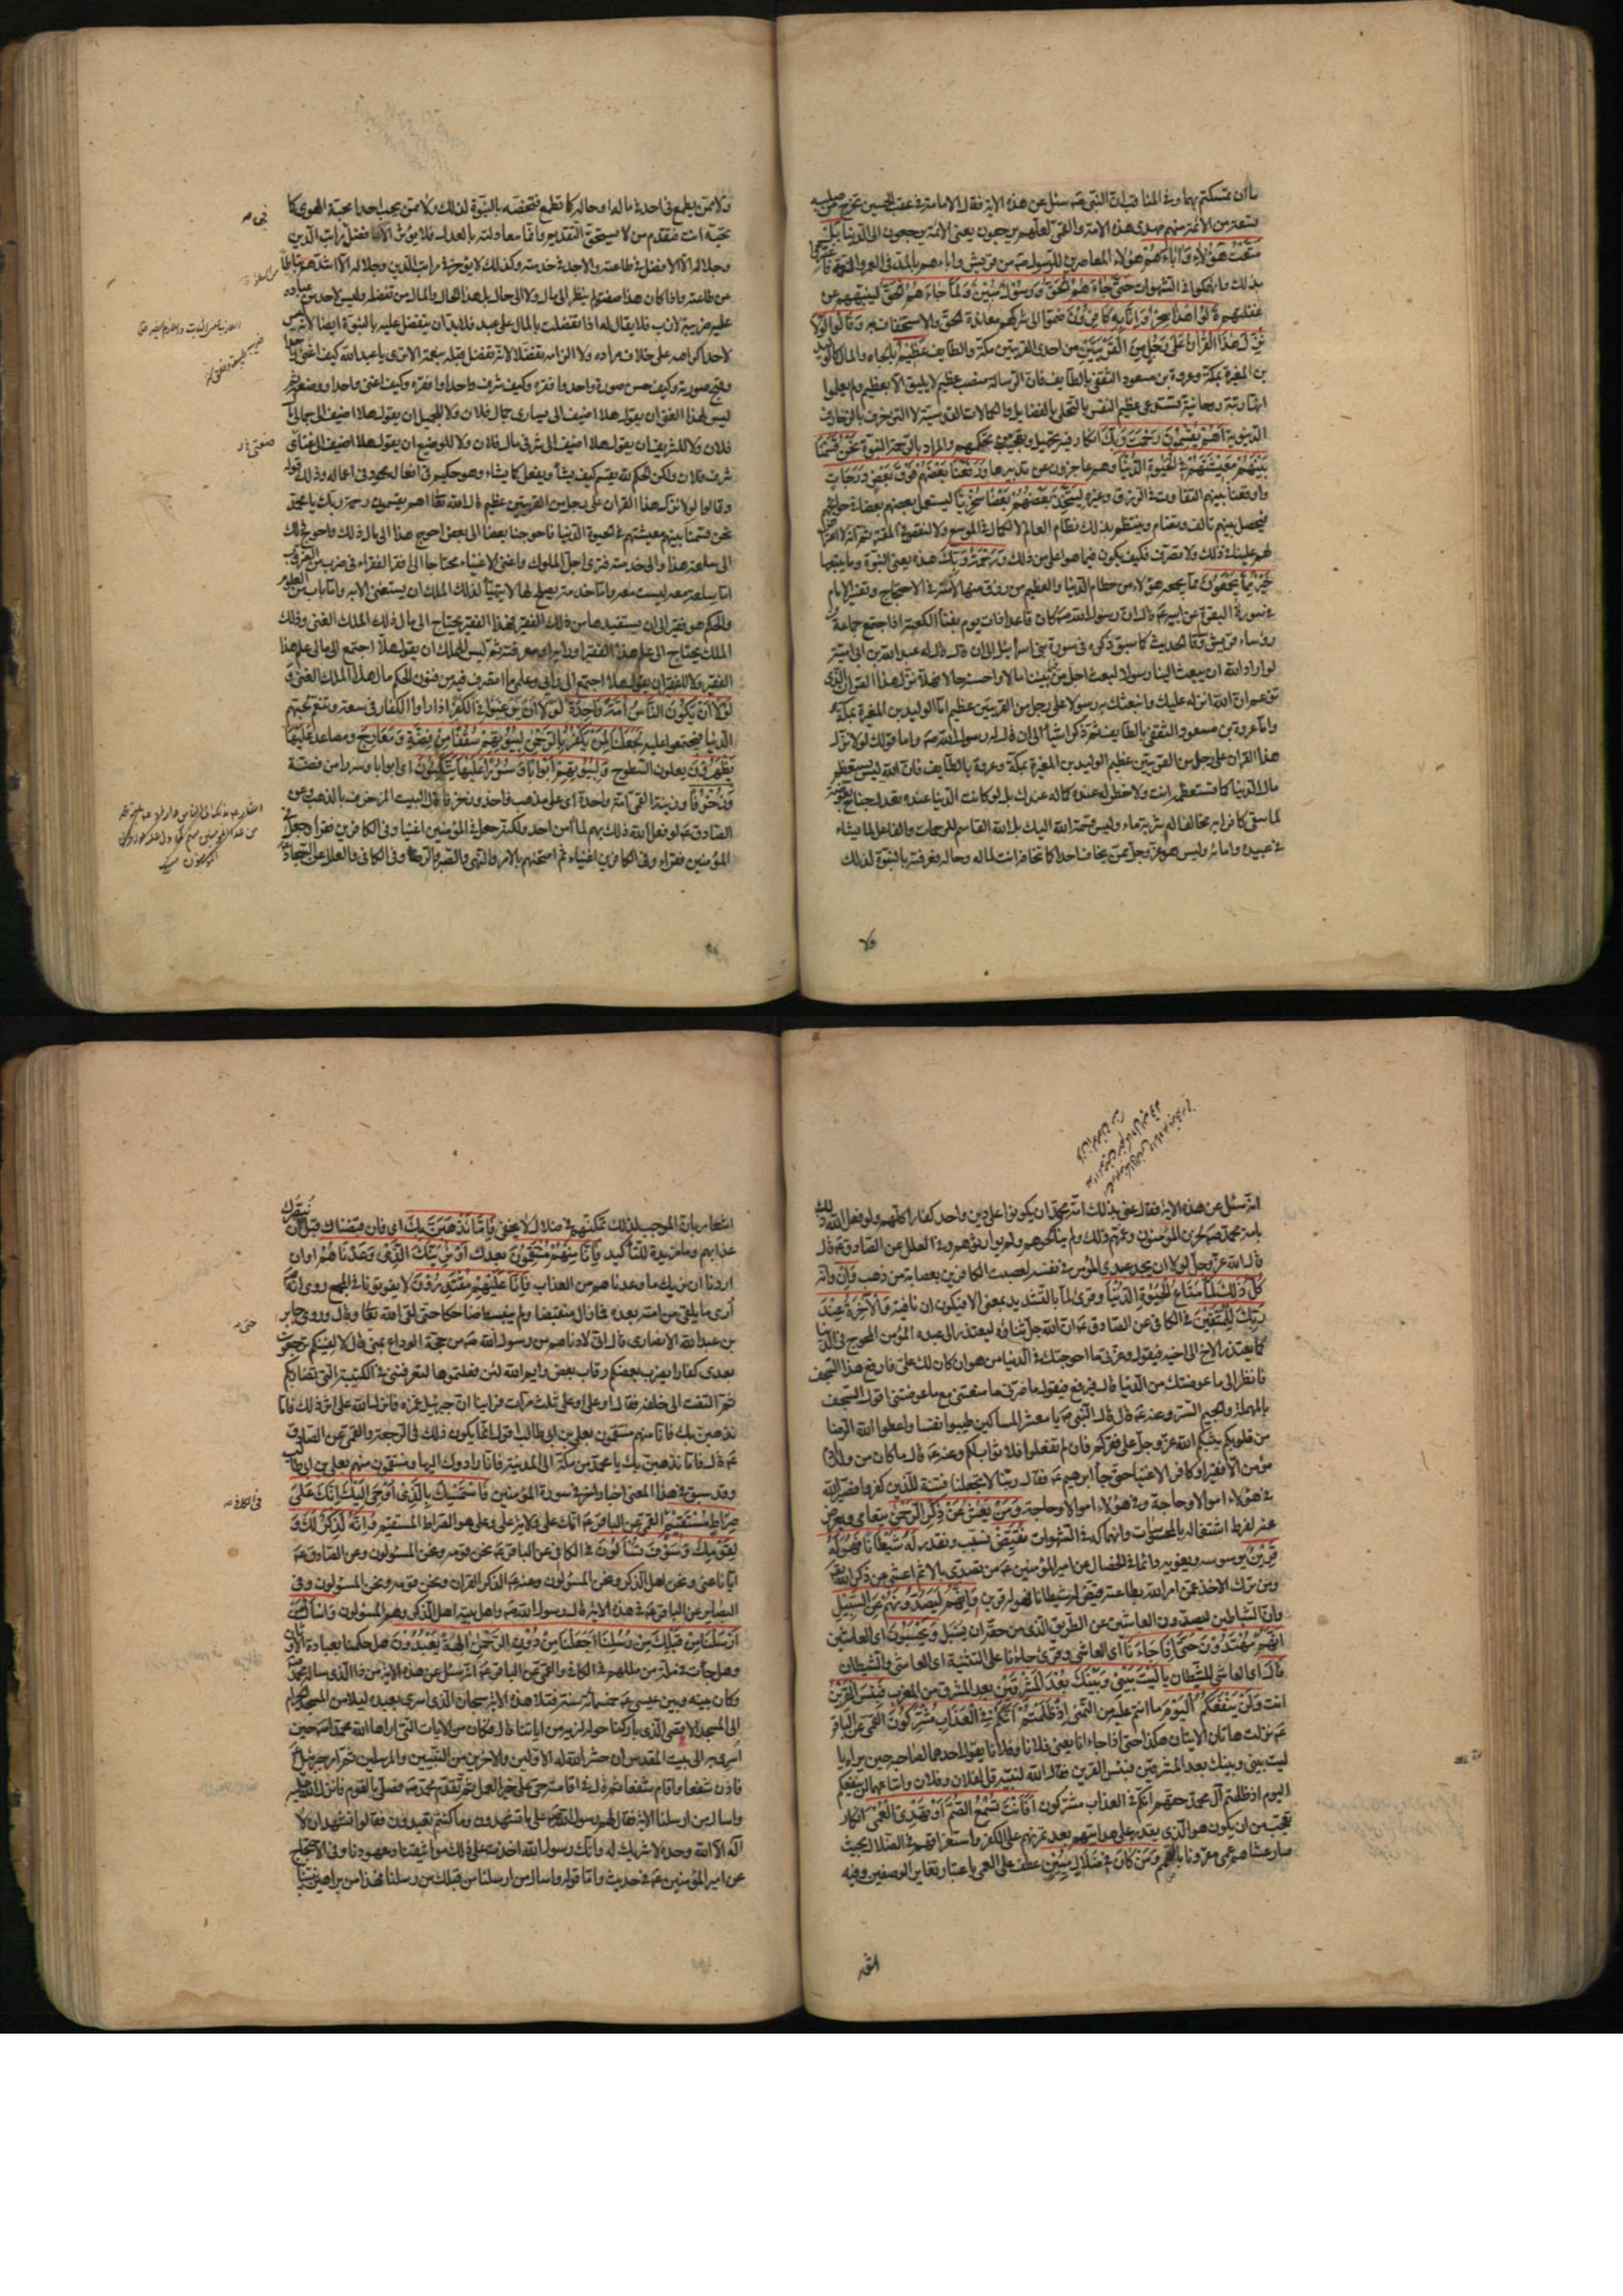 ما ان تمسكتم بهما وفي المناقب ان النبي صم سئل عن هذه الاية فقال الامامة في عقب الحسين تخرج من صلبه
تسعة من الائمة منهم مهدي هذه الامة والقمي لعلهم يرجعون يعني الائمة يرجعون الى الدنيا بل
متعت هؤلاء واباءهم هؤلاء المعاصرين للرسول صم من قريش واباءهم بالمد في العمر والنعمة فاغتروا
بذلك وانهمكوا في الشهوات حتى جاءهم الحق ورسول مبين ولما جاءهم الحق لينبههم عن
غفلتهم قالوا هذا سحر وانا به كافرون ضموا الى شركهم معاندة الحق والاستخفاف به وقالوا لولا
نزل هذا القران على رجل من القريتين من احدى القريتين مكة والطايف عظيم بالجاه والمال كالوليد
بن المغيرة بمكة وعروة بن مسعود الثقفي بالطايف فان الرسالة منصب عظيم لا يليق الا بعظيم ولم يعلموا
انها رتبة روحانية تستدعي عظيم النفس بالتحلي بالفضايل والكمالات القدسية لا التزخرف بالزخارف
الدنيوية اهم يقسمون رحمت ربك انكار فيه تجهيل وتعجيب من تحكمهم والمراد بالرحمة النبوة نحن قسمنا
بينهم معيشتهم في الحيوة الدنيا وهم عاجزون عن تدبيرها ورفعنا بعضهم فوق بعض درجات
واوقعنا بينهم التفاوت في الرزق وغيره ليتخذ بعضهم بعضا سخريا ليستعمل بعضهم بعضا في حوايجهم
فيحصل بينهم تالف وتضام وينتظم بذلك نظام العالم لا لكمال في الموسع ولا لنقص في المقتر ثم انه لا اعتراض
لهم علينا في ذلك ولا تصرف فكيف يكون فيما هو اعلى من ذلك ورحمة ربك هذه يعني النبوة وما يتبعها
خير مما يجمعون مما يجمعه هؤلاء من حطام الدنيا والعظيم من رزق منها لا منه في الاحتجاج وتفسير الامام
في سورة البقرة عن ابيه عم قال ان رسول الله صم كان قاعدا ذات يوم بفناء الكعبة اذا اجتمع جماعة
رؤساء قريش وساق الحديث كما سبق ذكره في سورة بني اسرائيل الى ان قال قال له عبد الله بن ابي امية
لو اراد الله ان يبعث الينا رسولا لبعث اجل من فيما بيننا مالا واحسنه حالا فهلا نزل هذا القران الذي
تزعم ان الله انزله عليك وابتعثك به رسولا على رجل من القريتين عظيم اما الوليد بن المغيرة بمكة
واما عروة بن مسعود الثقفي بالطايف ثم ذكر اشياء الى ان قال له رسول الله صم واما قولك لولا نزل
هذا القران على رجل من القريتين عظيم الوليد بن المغيرة بمكة وعروة بالطايف فان الله ليس يستعظم
مال الدنيا كما تستعظمه انت ولا خطر له عنده كما له عندك بل لو كانت الدنيا عنده تعدل جناح بعوضة
لما سقى كافرا به مخالفا له شربة ماء وليس قسمة الله اليك بل الله القاسم للرحمات والفاعل لما يشاء
في عبيده وامائه وليس هو عز وجل ممن يخاف احدا كما تخافه انت لماله وحاله فعرفته بالنبوة لذلك
ولا
ولا ممن يطمع في احد في ماله او حاله كما تطمع فتخصه بالنبوة لذلك ولا ممن يحب احدا محبة الهوى كما
تحبه انت فتقدم من لا يستحق التقديم وانما معاملته بالعدل فلا يؤثر الا افضل مراتب الدين
وجلاله الا الافضل في طاعته والاجد في خدمته وكذلك لا يؤخر في مراتب الدين وجلاله الا اشدهم تباطأ
عن طاعته واذا كان هذا صفته لم ينظر الى مال ولا الى حال بل هذا الحال والمال من تفضله وليس لاحد من عباده
عليه ضريبة لازب فلا يقال له اذا تفضلت بالمال على عبد فلا بد ان يتفضل عليه بالنبوة ايضا لانه ليس
لاحد اكراهه على خلاف مراده ولا الزامه تفضلا لانه تفضل قبله بنعمة الا ترى يا عبد الله كيف اغنى واحدا
وقبح صورته وكيف حسن صورة واحد وافقره وكيف شرف واحدا وافقره وكيف اغنى واحدا ووضعه ثم
ليس لهذا الغني ان يقول هلا اضيف الى يساري جمال فلان ولا للجميل ان يقول هلا اضيف الى جمالي مال
فلان ولا للشريف ان يقول هلا اضيف الى شرفي مال فلان ولا للوضيع ان يقول هلا اضيف الى ضعتي
شرف فلان ولكن الحكم لله يقسم كيف يشاء ويفعل كما يشاء وهو حكيم في افعاله محمود في اعماله وذلك قوله
وقالوا لولا نزل هذا القران على رجل من القريتين عظيم قال الله تعالى اهم يقسمون رحمة ربك يا محمد
نحن قسمنا بينهم معيشتهم في الحيوة الدنيا فاحوجنا بعضا الى بعض احوج هذا الى مال ذلك واحوج ذلك
الى سلعة هذا والى خدمته فترى اجل الملوك واغنى الاغنياء محتاجا الى افقر الفقراء في ضرب من الضروب
اما سلعة معه ليست معه واما خدمة يصلح لها لا يتهيأ لذلك الملك ان يستغني الا به واما باب من العلوم
والحكم هو فقير الى ان يستفيدها من ذلك الفقير فهذا الفقير يحتاج الى مال ذلك الملك الغني وذلك
الملك يحتاج الى علم هذا الفقير او رأيه او معرفته ثم ليس للملك ان يقول هلا اجتمع الى مالي علم هذا
الفقير ولا للفقير ان يقول هلا اجتمع الى رأيي وعلمي وما اتصرف فيه من فنون الحكم مال هذا الملك الغني و
لولا ان يكون الناس امة واحدة لولا ان يرغبوا في الكفر اذا راوا الكفار في سعة وتنعم لحبهم
الدنيا فيجتمعوا عليه لجعلنا لمن يكفر بالرحمن لبيوتهم سقفا من فضة ومعارج ومصاعد عليها
يظهرون يعلون السطوح ولبيوتهم ابوابا وسررا عليها يتكئون اي ابوابا وسررا من فضة
وزخرفا وزينة القمي امة واحدة اي على مذهب واحد وزخرفا قال البيت المزخرف بالذهب وعن
الصادق عم لو فعل الله ذلك بهم لما امن احد ولكنه جعل في المؤمنين اغنياء وفي الكافرين فقراء وجعل في
المؤمنين فقراء وفي الكافرين اغنياء ثم امتحنهم بالامر والنهي والصبر والرضا وفي الكافي والعلل عن السجاد
انه سئل عن هذه الاية فقال عنى بذلك امة محمد ان يكونوا على دين واحد كفارا كلهم ولو فعل الله ذلك
بامة محمد صم لحزن المؤمنون وغمهم ذلك ولم يناكحوهم ولم يوارثوهم وفي العلل عن الصادق عم قال
قال الله عز وجل لولا ان يجد عبدي المؤمن في نفسه لعصبت الكافرين بعصابة من ذهب وان وانه
كل ذلك لما متاع الحيوة الدنيا وقرئ لما بالتشديد بمعنى الا فيكون ان نافية والاخرة عند
ربك للمتقين في الكافي عن الصادق عم ان الله جل ثناؤه ليعتذر الى عبده المؤمن المحوج في الدنيا
كما يعتذر الاخ الى اخيه فيقول وعزتي ما احوجتك في الدنيا من هوان كان لك علي فارفع هذا السجف
فانظر الى ما عوضتك من الدنيا قال فيرفع فيقول ما ضرني ما منعتني مع ما عوضتني اقول السجف
بالمهملة والجيم الستر وعنه عم قال قال النبي صم يا معشر المساكين طيبوا نفسا واعطوا الله الرضا
من قلوبكم يثبكم الله عز وجل على فقركم فان لم تفعلوا فلا ثواب لكم وعنه عم قال ما كان من ولد ادم
مؤمن الا فقيرا وكافر الا غنيا حتى جاء ابرهيم عم فقال ربنا لا تجعلنا فتنة للذين كفروا فصير الله
في هؤلاء اموالا وحاجة وفي هؤلاء اموالا وحاجة ومن يعش عن ذكر الرحمن يتعام ويعرض
عنه لفرط اشتغاله بالمحسوسات وانهماكه في الشهوات نقيض نسبب ونقدر له شيطانا فهو له
قرين يوسوسه ويغويه دائما في الخصال عن امير المؤمنين عم من تصدى بالاثم اعشى عن ذكر الله
ومن ترك الاخذ عمن امر الله بطاعته قيض له شيطانا فهو له قرين وانهم ليصدونهم عن السبيل
وان الشياطين ليصدون العاشين عن الطريق الذي من حقه ان يسبل ويحسبون اي العاشين
انهم مهتدون حتى اذا جاءنا اي العاشي وقرئ جاءانا على التثنية اي العاشي والشيطان
قال اي العاشي للشيطان يا ليت بيني وبينك بعد المشرقين بعد المشرق من المغرب فبئس القرين
انت ولن ينفعكم اليوم ما انتم عليه من التمني اذ ظلمتم انكم في العذاب مشتركون القمي عن الباقر
عم نزلت هاتان الايتان هكذا حتى اذا جاءانا يعني فلانا وفلانا يقول احدهما لصاحبه حين يراه يا
ليت بيني وبينك بعد المشرقين فبئس القرين فقال الله لنبيه قل لفلان وفلان واتباعهما لن ينفعكم
اليوم اذ ظلمتم آل محمد حقهم انكم في العذاب مشتركون افانت تسمع الصم او تهدي العمي انكار
تعجب من ان يكون هو الذي يقدر على هدايتهم بعد تمرنهم على الكفر واستغراقهم في الضلال بحيث
صار عشاهم عمى مقرونا بالصمم ومن كان في ضلال مبين عطف على العمي باعتبار تغاير الوصفين وفيه
اشعار بان الموجب لذلك تمكنهم في ضلال لا يخفى فاما نذهبن بك اي فان قبضناك قبل ان نبصرك
عذابهم وما مزيدة للتأكيد فانا منهم منتقمون بعدك او نرينك الذي وعدناهم او ان
اردنا ان نريك ما وعدناهم من العذاب فانا عليهم مقتدرون لا يفوتوننا في المجمع روي انه
أري ما يلقى من امته بعده فما زال منقبضا ولم ينبسط ضاحكا حتى لقي الله تعالى قال وروى جابر
بن عبد الله الانصاري قال اني لادناهم من رسول الله صم في حجة الوداع بمنى قال لا الفينكم ترجعون
بعدي كفارا يضرب بعضكم رقاب بعض وايم الله لئن فعلتموها لتعرفنني في الكتيبة التي تضاربكم
ثم التفت الى خلفه فقال او علي او علي ثلث مرات فراينا ان جبرئيل غمزه فانزل الله على اثر ذلك فاما
نذهبن بك فانا منهم منتقمون بعلي بن ابي طالب اقول انما يكون ذلك في الرجعة والقمي عن الصادق
عم قال فاما نذهبن بك يا محمد من مكة الى المدينة فانا رادوك اليها ومنتقمون منهم بعلي بن ابي طالب
وقد سبق في هذا المعنى اخبار اخر في سورة المؤمنين فاستمسك بالذي اوحي اليك انك على
صراط مستقيم القمي عن الباقر عم انك على ولاية علي وعلي هو الصراط المستقيم وانه لذكر لك و
لقومك وسوف تسألون في الكافي عن الباقر عم نحن قومه ونحن المسئولون وعن الصادق عم
ايانا عنى ونحن اهل الذكر ونحن المسئولون وعنه عم الذكر القران ونحن قومه ونحن المسئولون وفي
البصاير عن الباقر عم في هذه الاية قال رسول الله صم واهل بيته اهل الذكر وهم المسئولون واسأل من
ارسلنا من قبلك من رسلنا اجعلنا من دون الرحمن الهة يعبدون هل حكمنا بعبادة الاوثان
وهل جاءت في ملة من مللهم في الكافي والقمي عن الباقر عم انه سئل عن هذه الاية من ذا الذي سأله محمد
وكان بينه وبين عيسى عم خمسمائة سنة فتلا هذه الاية سبحان الذي اسرى بعبده ليلا من المسجد الحرام
الى المسجد الاقصى الذي باركنا حوله لنريه من اياتنا قال فكان من الايات التي اراها الله محمدا صم حين
اسري به الى بيت المقدس ان حشر الله له الاولين والاخرين من النبيين والمرسلين ثم امر جبرئيل
فاذن شفعا واقام شفعا ثم قال في اقامته حي على خير العمل ثم تقدم محمد صم فصلى بالقوم فانزل الله عليه
واسأل من ارسلنا الاية فقال لهم رسول الله صم على ما تشهدون وما كنتم تعبدون فقالوا نشهد ان لا
اله الا الله وحده لا شريك له وانك رسول الله اخذت على ذلك مواثيقنا وعهودنا وفي الاحتجاج
عن امير المؤمنين عم في حديث واما قوله واسأل من ارسلنا من قبلك من رسلنا فهذا من براهين نبينا